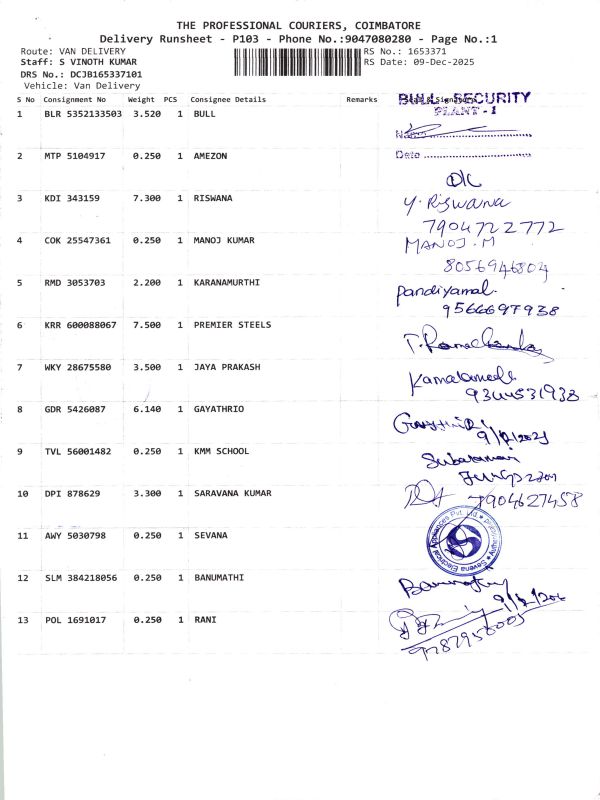 THE PROFESSIONAL COURIERS, COIMBATORE
Delivery Runsheet - P103 - Phone No.:9047080280 - Page No.:1
Route: VAN DELIVERY RS No.: 1653371
Staff: S VINOTH KUMAR RS Date: 09-Dec-2025
DRS No.: DCJB165337101
Vehicle: Van Delivery
S No Consignment No Weight PCS Consignee Details Remarks
BULL SECURITY
PLANT - 1
1 BLR 5352133503 3.520 1 BULL
Name
Date
2 MTP 5104917 0.250 1 AMEZON
OK
3 KDI 343159 7.300 1 RISWANA Y. Riswana
7904722772
4 COK 25547361 0.250 1 MANOJ KUMAR MANOJ.M
8056946804
5 RMD 3053703 2.200 1 KARANAMURTHI Pandiyamal.
9566697938
6 KRR 600088067 7.500 1 PREMIER STEELS
7 WKY 28675580 3.500 1 JAYA PRAKASH
8 GDR 5426087 6.140 1 GAYATHRIO
9 TVL 56001482 0.250 1 KMM SCHOOL
10 DPI 878629 3.300 1 SARAVANA KUMAR 7904627458
11 AWY 5030798 0.250 1 SEVANA Sevana Electrical Appliances Pvt. Ltd.
12 SLM 384218056 0.250 1 BANUMATHI
13 POL 1691017 0.250 1 RANI